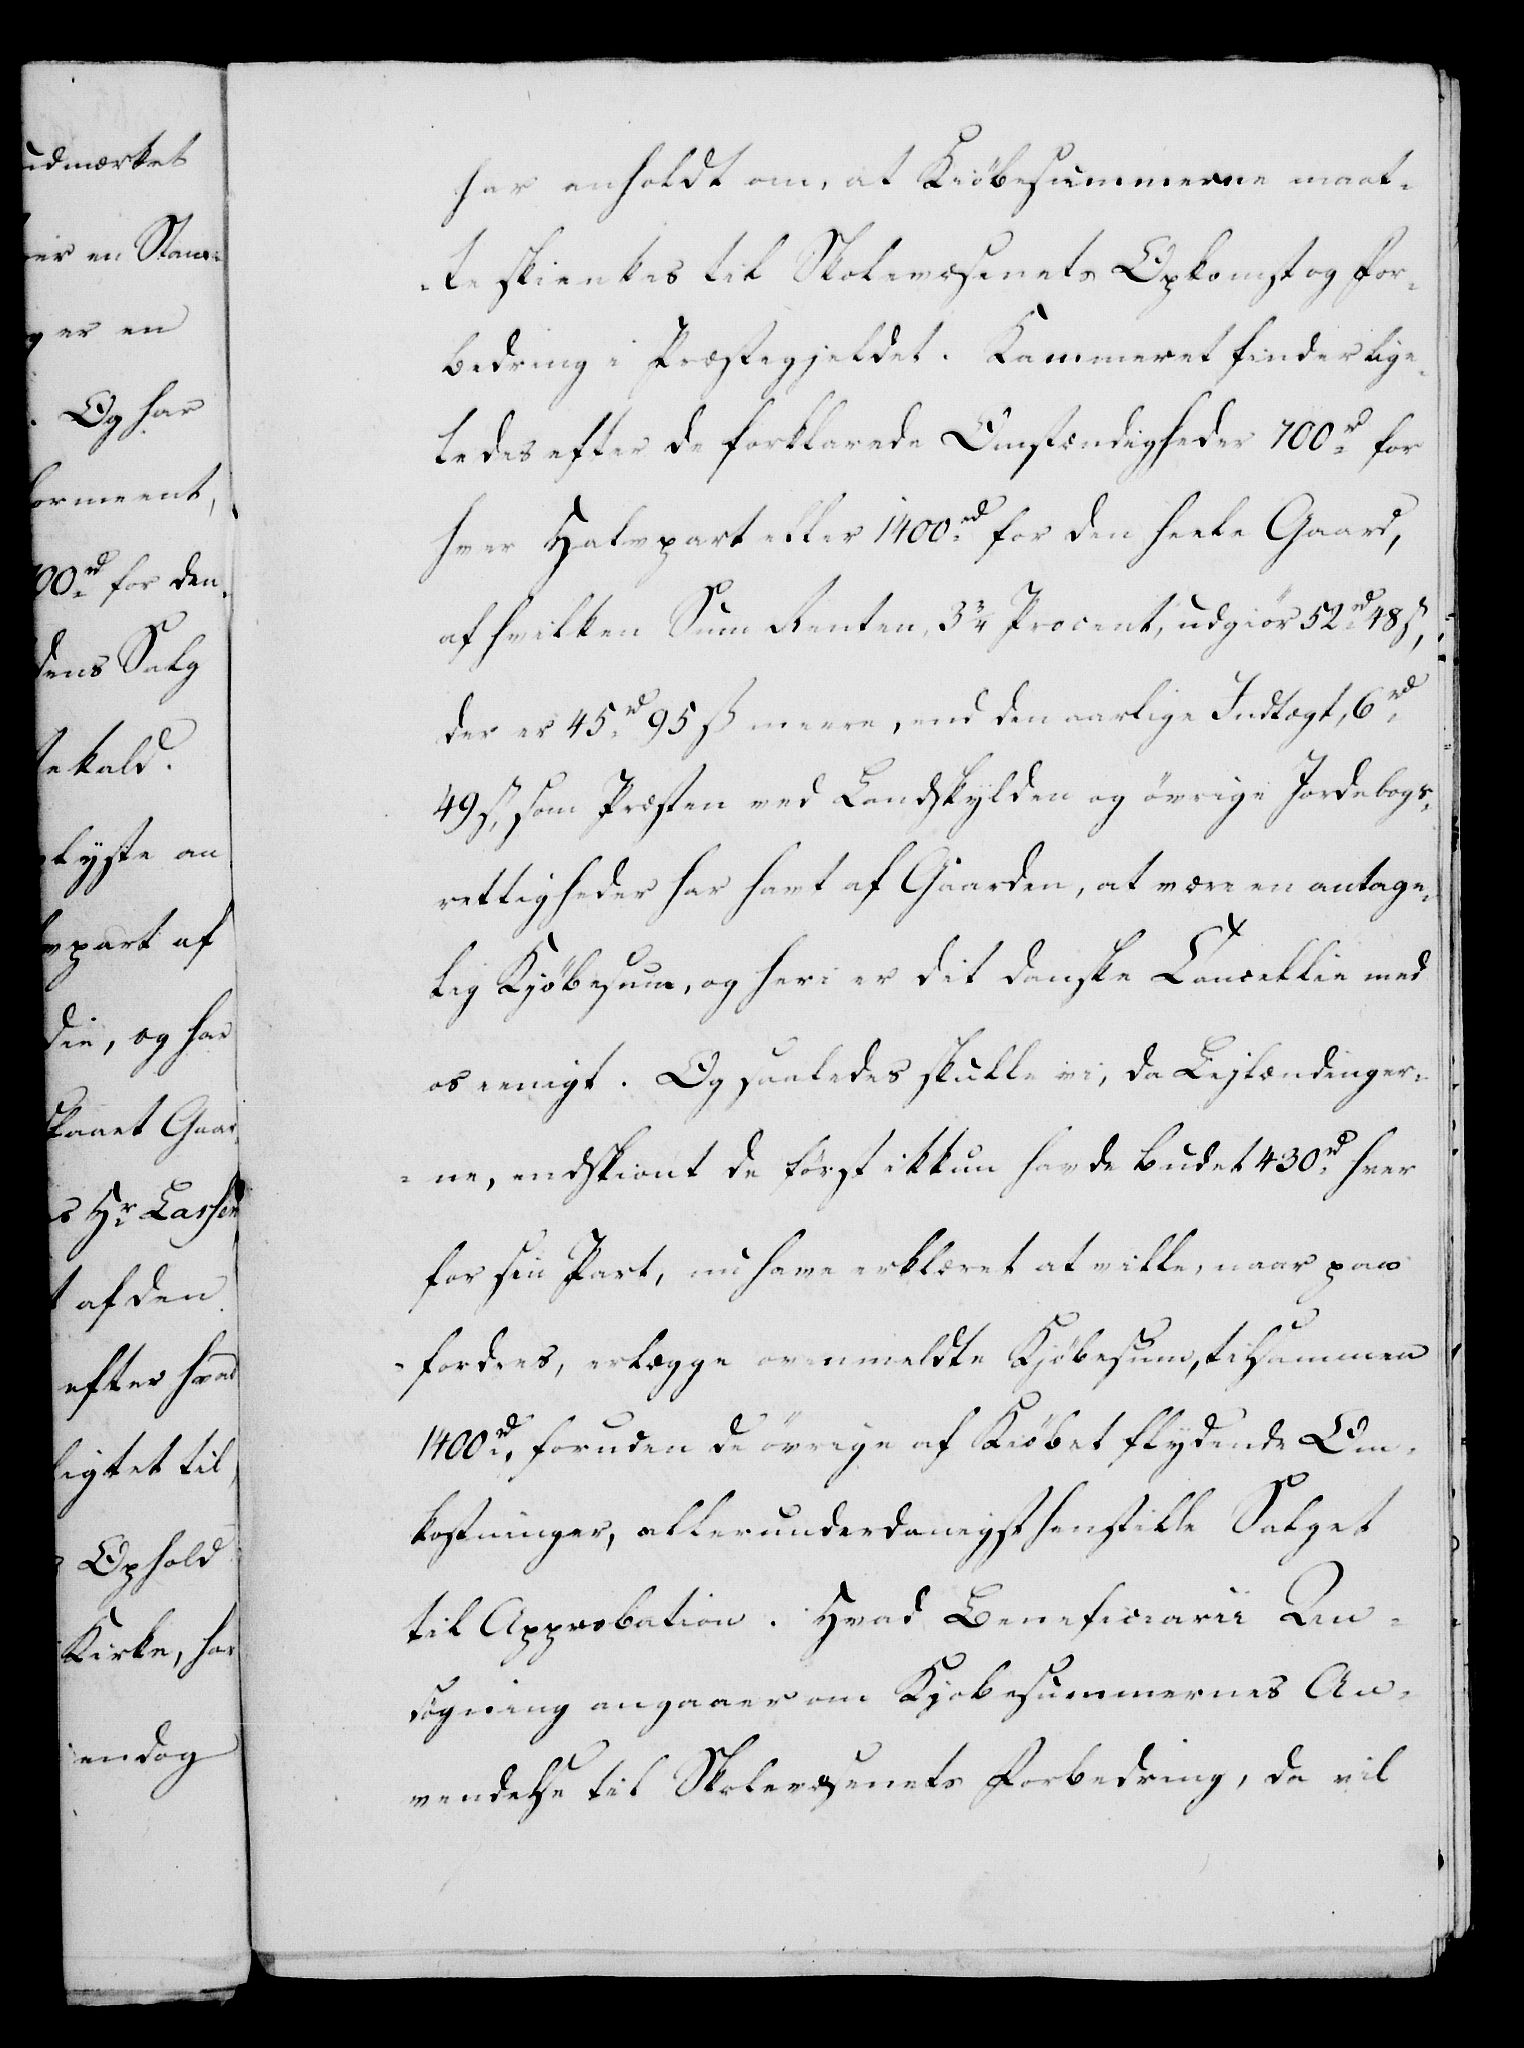 udmærket
er en Stam-
g er en
. Og har
formeent,
700rd for den
dens Salg
sekald.
lyste an
vpart af
die, og har
skaaet Gaar-
s Hr Lassen
t af den
efter hvad
ligtet til,
Ophold
Kirke, har
endog
har anholdt om, at Kiöbesummerne maat-
-te skienkes til Skolevæsenets Opkomst og For-
bedring i Præstegjeldet. Kammeret finder lige-
ledes efter de forklarede Omstændigheder 700rd for
hver Halvpart eller 1400rd for den heele Gaard,
af hvilken Sum Renten, 3¾ Procent, udgiör 52rd 48 s,
der er 45rd 95 ß meere, end den aarlige Indtægt, 6rd
49 s, som Præsten ved Landskylden og övrige Jordebogs-
rettigheder har havt af Gaarden, at være en antage-
lig Kjöbesum, og heri er dit danske Cancellie med
os eenigt. Og saaledes skulle vi, da Lejlændinger-
-ne, endskiönt de först ikkun havde budet 430rd hver
for sin Part, nu have erklæret at ville, naar paa
-fordres, erlægge ovenmeldte Kjöbesum, tilsammen
1400rd, foruden de övrige af Kiöbet flydende Om-
kostninger, allerunderdanigst henstille Salget
til Approbation. Hvad Beneficiarii An-
søgning angaaer om Kjøbesummernes An-
vendelse til Skolevæsenets Forbedring, da vil